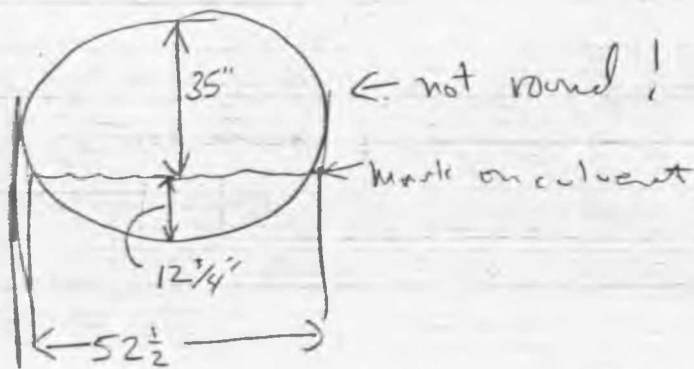 35"
← not round!
← mark on culvert
12 3/4"
← 52 1/2 →